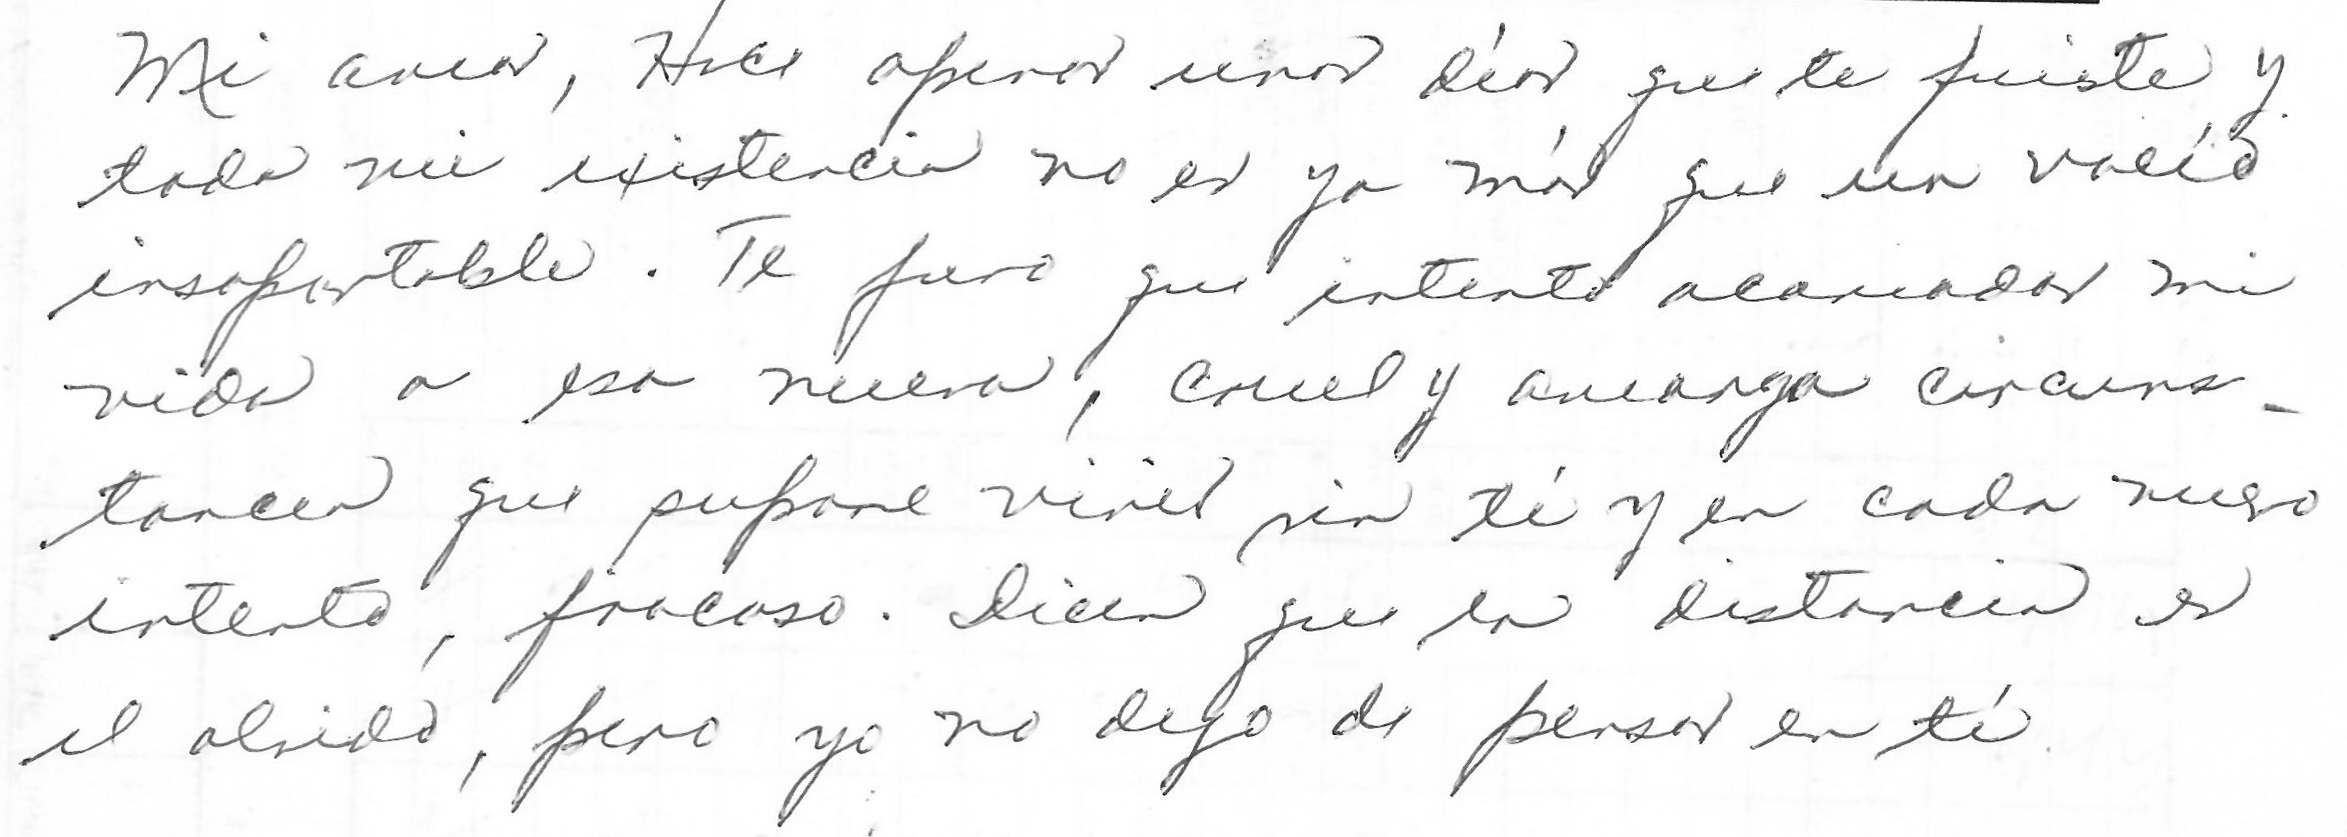 Mi amor, Hace apenas unos días que te fuiste y
toda mi existencia no es ya más que un vacío
insoportable. Te juro que intento acomodar mi
vida a esa nueva, cruel y amarga circuns-
tancia que supone vivir sin tí y en cada nuevo
intento, fracaso. Dicen que la distancia es
el olvido, pero yo no dejo de pensar en tí